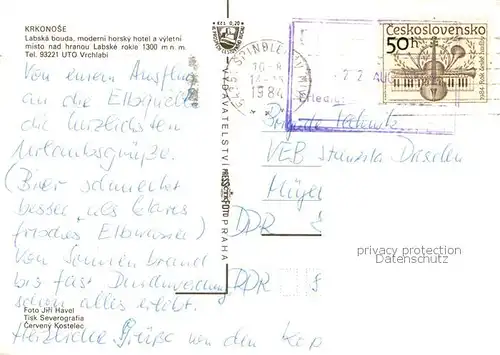 KRKONOŠE
Labská bouda, moderní horský hotel a výletní
místo nad hranou Labské rokle 1300 m n. m.
Tel. 93221 UTO Vrchlabí
Von einem Ausflug
an die Elbquelle
die herzlichsten
Urlaubsgrüße.
(Bier schmeckt
besser als klares
frisches Elbwasser)
Von Sonnenbrand
bis fast Durchnässung
schon alles erlebt.
Herzliche Grüße von den
Foto Jiří Havel
Tisk Severografia
Červený Kostelec
Kčs 0,20
VYDAVATELSTVÍ PRESSFOTO PRAHA
ŠPINDLERŮV MLÝN
1984
22 AUG
Erledigt
Československo
50 h
1984 Rok české hudby
Brigade
VEB Dresden
DDR
DDR
privacy protection
Datenschutz